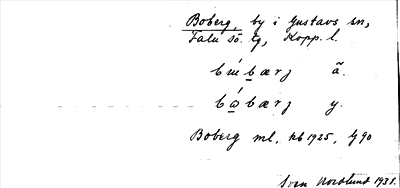 Boberg, by i Gustavs sn,
Falu sö. tg, Kopp. l.
bærj ã.
bærj y.
Boberg ml, kb 1925, G 90
Sven Nordlund 1931.